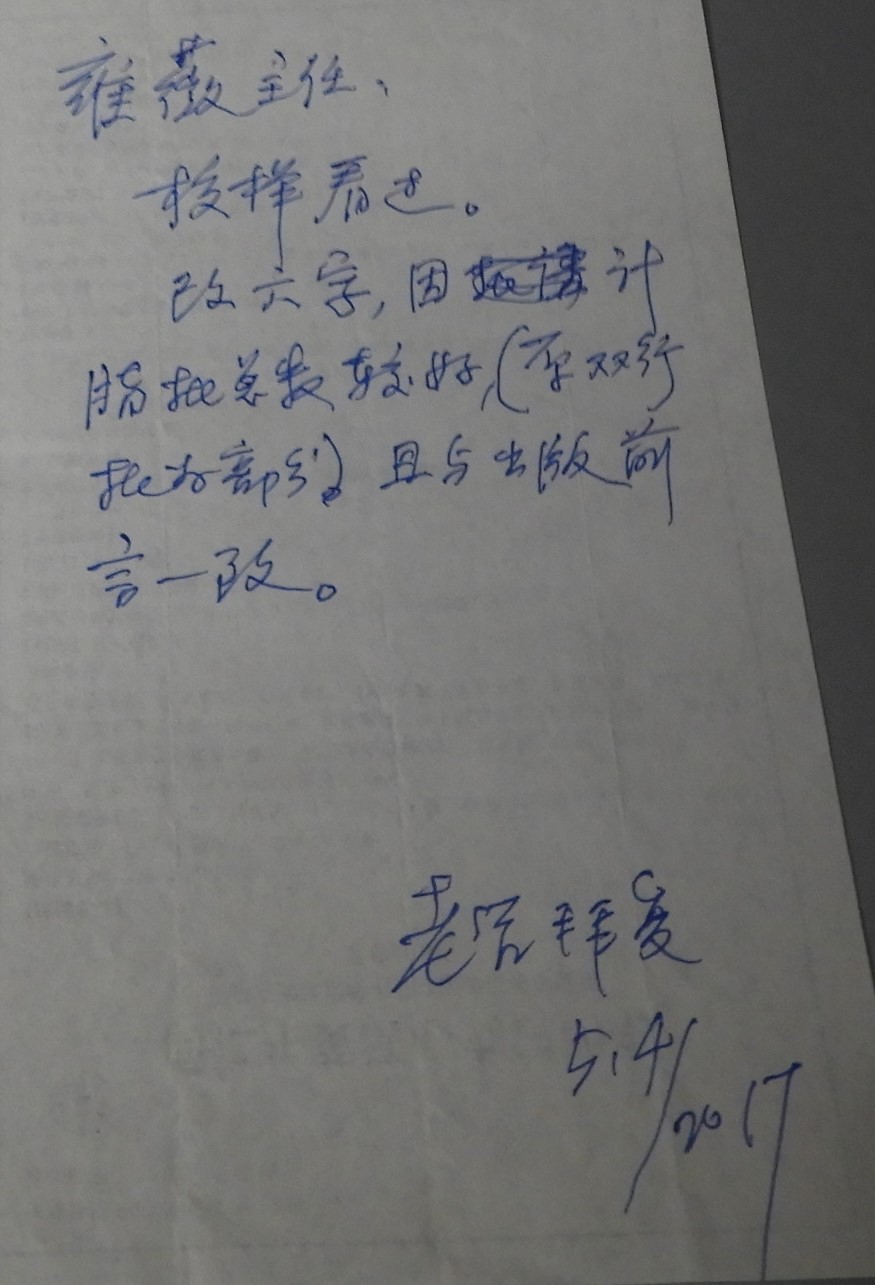 雍薇主任、
校样看过。
改六字,因计
脂批总数较好,(原双行
批为部分)且与出版前
言一致。
老沉拜复
5.4/2017